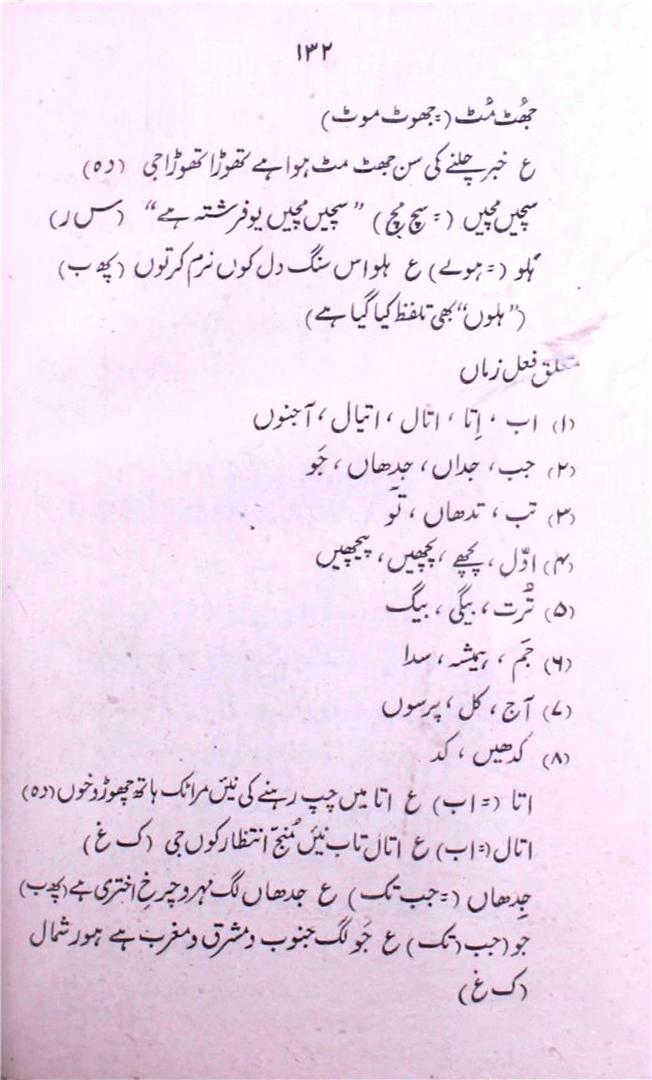 ۱۳۲
جھُٹ مُٹ (= جھوٹ موٹ)
ع خبر چلنے کی سن جھٹ مٹ ہوا ہے تھوڑا تھوڑا جی (دہ)
سچیں مچیں (= سچ مُچ) ”سچیں مچیں یو فرشتہ ہے“ (س ر)
ہَلو (= ہولے) ع ہلو اس سنگ دل کوں نرم کر توں (پھ ب)
(”ہلوں“ بھی تلفظ کیا گیا ہے)
متعلق فعل زماں
(۱) اب، اِتا، اتال، اتیال، آجنوں
(۲) جب، جداں، جدھاں، جَو
(۳) تب، تدھاں، تَو
(۴) اوّل، پچھے، پچھیں، پیچھیں
(۵) تُرت، بیگی، بیگ
(۶) جَم، ہمیشہ، سدا
(۷) آج، کل، پرسوں
(۸) کدھیں، کد
اتا (= اب) ع اتا میں چپ رہنے کی نئیں مرا ٹک ہاتھ چھوڑو خوں (دہ)
اتال (= اب) ع اتال تاب نئیں مُنجّ انتظار کوں جی (ک غ)
جِدھاں (= جب تک) ع جدھاں لگ مہر و چرخِ اختری ہے (پھ ب)
جو (جب (تک) ع جَو لگ جنوب و مشرق و مغرب ہے ہور شمال
(ک غ)